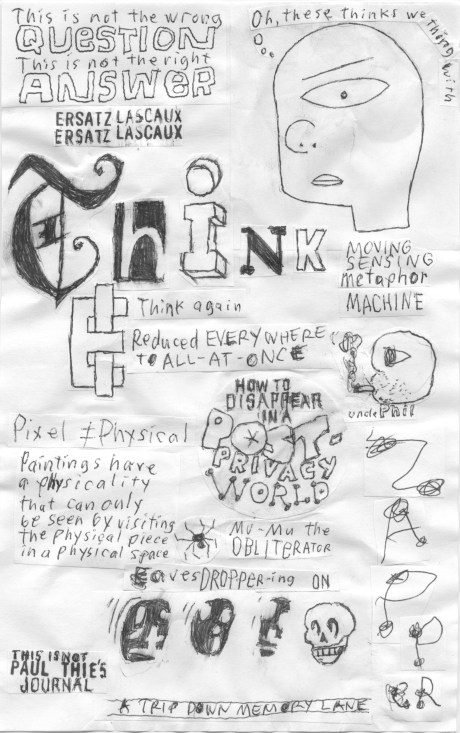 This is not the wrong
QUESTION
This is not the right
ANSWER
Oh, these thinks we thing with
ERSATZ LASCAUX
ERSATZ LASCAUX
Think
MOVING
SENSING
metaphor
MACHINE
Think again
Reduced EVERYWHERE
to ALL-AT-ONCE
uncle Phil
HOW TO
DISAPPEAR
IN A
POST-
PRIVACY
WORLD
Pixel ≠ Physical
Paintings have
a physicality
that can only
be seen by visiting
the physical piece
in a physical space
Mu-Mu the
OBLITERATOR
EavesDROPPER-ing ON
THIS IS NOT
PAUL THIE'S
JOURNAL
A TRIP DOWN MEMORY LANE